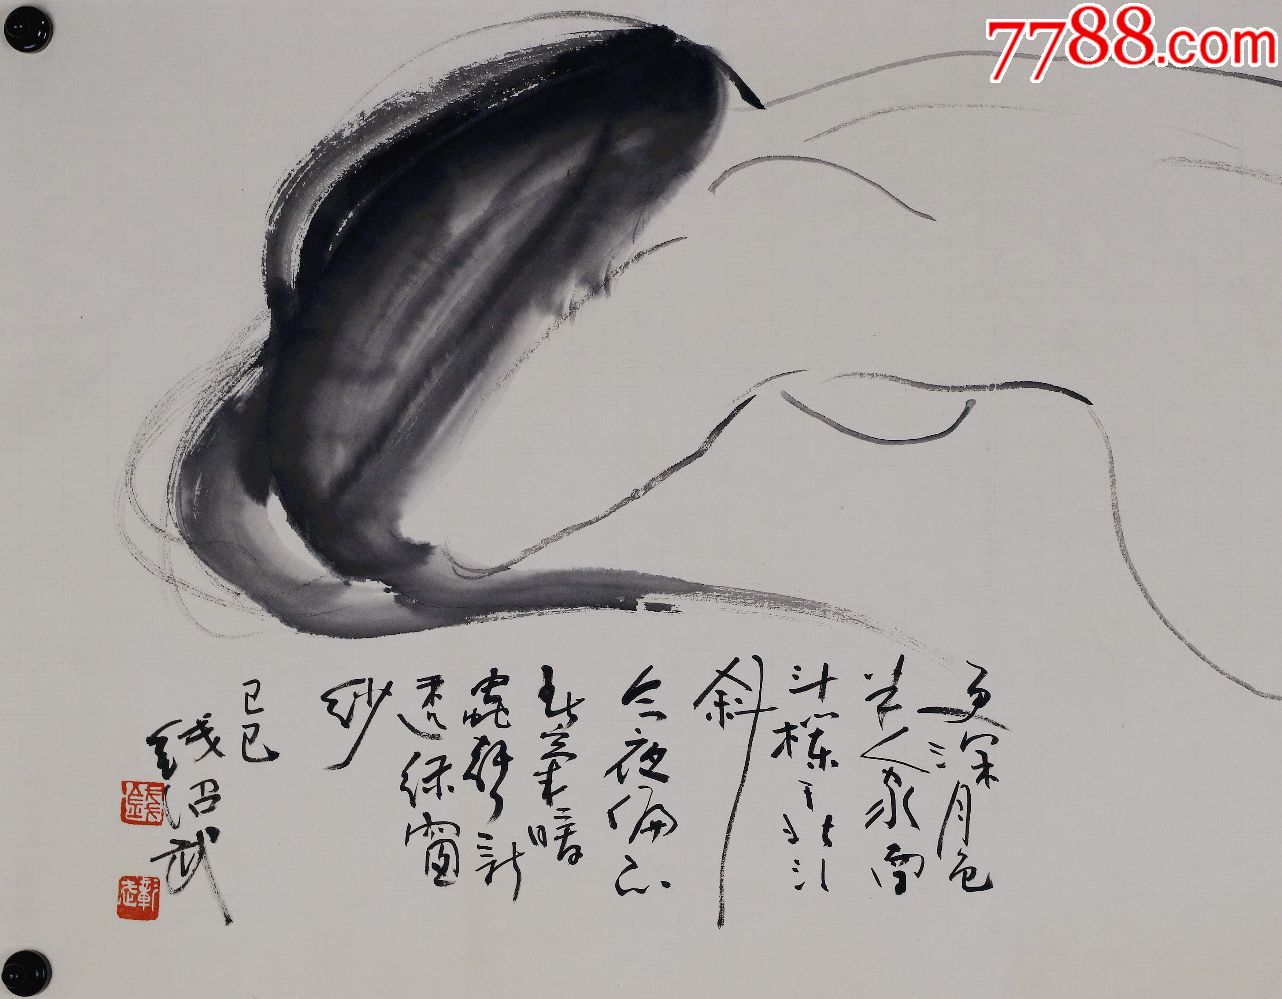 7788.com
更深月色
半人家南
斗欄干北斗
斜
今夜偏知
春氣暖
蟲聲新
透绿窗
纱
己巳
钱绍武